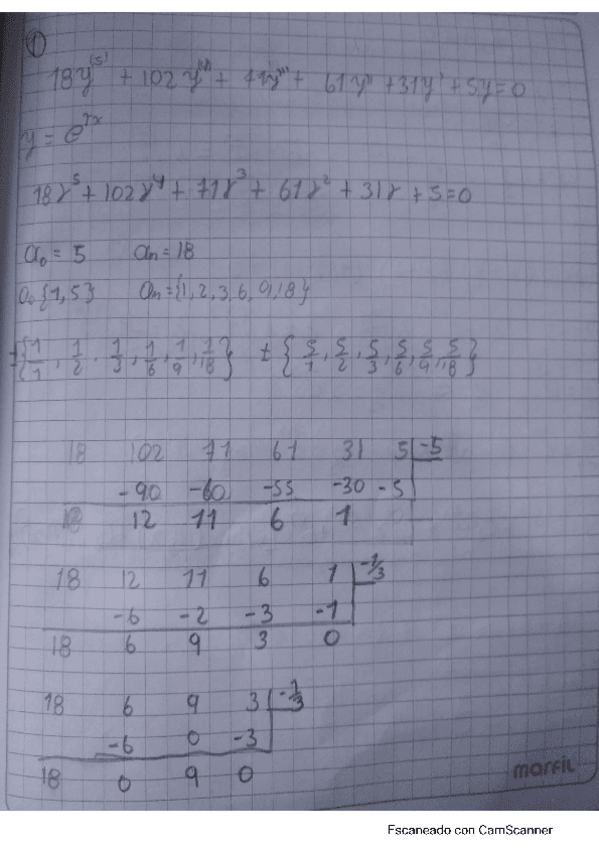 ①
18y⁽⁵⁾ + 102y⁽⁴⁾ + 71y''' + 61y'' + 31y' + 5y = 0
y = e^rx
18r⁵ + 102r⁴ + 71r³ + 61r² + 31r + 5 = 0
a₀ = 5 an = 18
a₀{1,5} an = {1,2,3,6,9,18}
±{1/1, 1/2, 1/3, 1/6, 1/9, 1/18} ±{5/1, 5/2, 5/3, 5/6, 5/9, 5/18}
18 102 71 61 31 5 |-5
-90 -60 -55 -30 -5
18 12 11 6 1
18 12 11 6 1 |-1/3
-6 -2 -3 -1
18 6 9 3 0
18 6 9 3 |-1/3
-6 0 -3
18 0 9 0
marfil
Escaneado con CamScanner